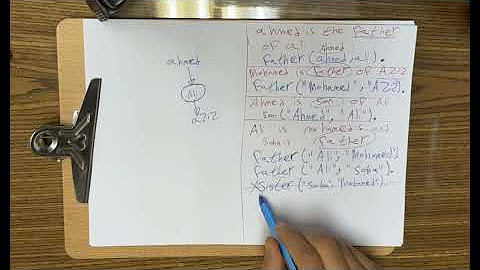 ahmed
Al
Aziz
ahmed is the father
of al
Ahmed
father (ahmed, al).
Mohamed is father of Aziz
father ("Mohamed", "Aziz").
Ahmed is son of Al
son ("Ahmed", "Al").
Al is mohamed's
Soha is father
father ("Al", "Mohamed")
father ("Al", "Soha").
sister ("Soha", "Mohamed").